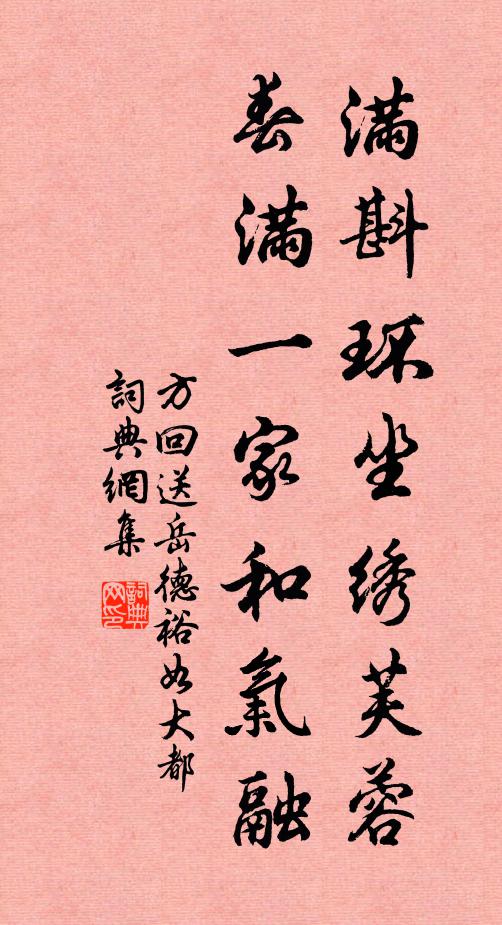 满斟环坐绣芙蓉
春满一家和氣融
方回送岳德裕如大都
詞典網集
詞典网印